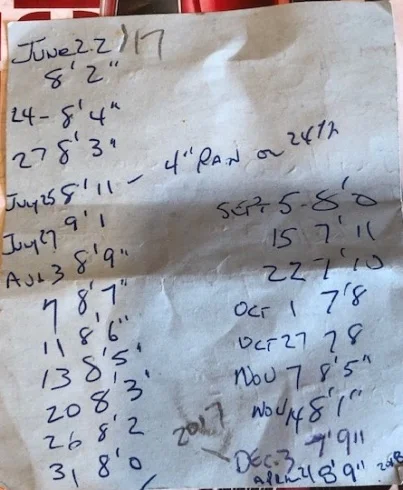 JUNE 22 '17
8' 2"
24 - 8' 4"
27 8' 3"
July 25 8' 11 - 4" RAN on 24th
July 27 9' 1
AUG 3 8' 9"
7 8' 7"
11 8' 6"
13 8' 5'
20 8' 3'
26 8' 2
31 8' 0
SEPT 5 - 8' 0
15 7' 11
22 7' 10
OCT 1 7' 8
OCT 27 7 8
NOV 7 8' 5"
NOV 14 8' 1"
2017
DEC. 3 7' 9"
APRIL 21 8' 9" 2018